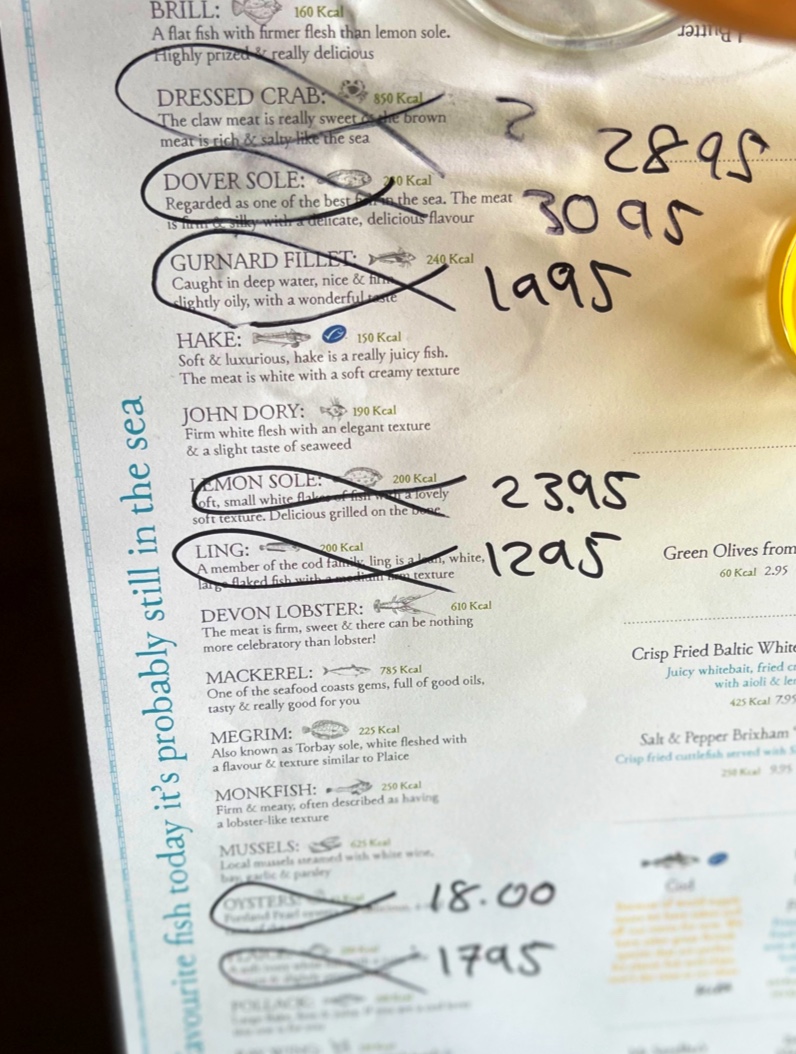 BRILL: 160 Kcal
A flat fish with firmer flesh than lemon sole.
Highly prized & really delicious
DRESSED CRAB: 850 Kcal 2
The claw meat is really sweet & the brown
meat is rich & salty like the sea
2895
DOVER SOLE: Kcal
Regarded as one of the best in the sea. The meat
is firm & silky with a delicate, delicious flavour
3095
GURNARD FILLET: 240 Kcal
Caught in deep water, nice & firm
slightly oily, with a wonderful taste
1995
HAKE: 150 Kcal
Soft & luxurious, hake is a really juicy fish.
The meat is white with a soft creamy texture
JOHN DORY: 190 Kcal
Firm white flesh with an elegant texture
& a slight taste of seaweed
LEMON SOLE: 200 Kcal
oft, small white flakes of fish with a lovely
soft texture. Delicious grilled on the bone
23.95
LING: 200 Kcal
A member of the cod family, ling is a lean, white,
large flaked fish with a medium firm texture
1295
DEVON LOBSTER: 610 Kcal
The meat is firm, sweet & there can be nothing
more celebratory than lobster!
MACKEREL: 785 Kcal
One of the seafood coasts gems, full of good oils,
tasty & really good for you
MEGRIM: 225 Kcal
Also known as Torbay sole, white fleshed with
a flavour & texture similar to Plaice
MONKFISH: 250 Kcal
Firm & meaty, often described as having
a lobster-like texture
MUSSELS: 625 Kcal
Local mussels steamed with white wine,
bay, garlic & parsley
OYSTERS
18.00
1795
POLLACK:
avourite fish today it's probably still in the sea
Butter
Green Olives from
60 Kcal 2.95
Crisp Fried Baltic White
Juicy whitebait, fried
with aioli &
425 Kcal 7.95
Salt & Pepper Brixham
Crisp fried cuttlefish served with
250 Kcal 9.95
Cod